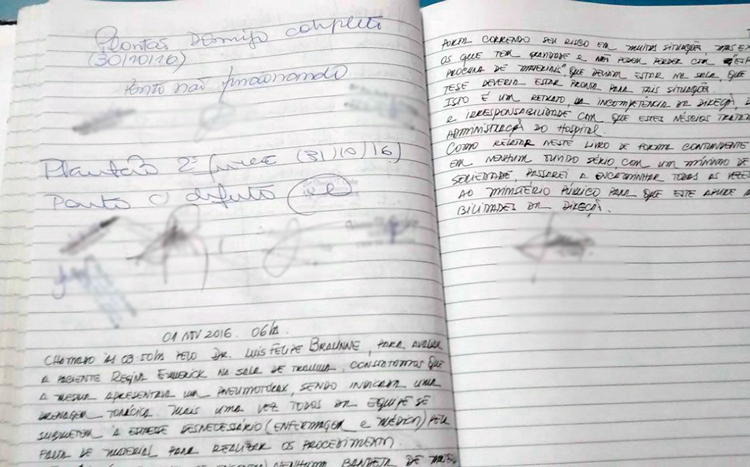 Plantão Domingo completo
(30/10/16)
Ponto não funcionando
Plantão 2ª feira (31/10/16)
Ponto c/ defeito
01 NOV 2016. 06h.
CHAMADO ÀS 03:50h PELO DR. LUIS FELIPE BRAUNNE, PARA AVALIAR
A PACIENTE REGINA EMERICK NA SALA DE TRAUMA, CONSTATAMOS QUE
A MESMA APRESENTAVA UM PNEUMOTÓRAX, SENDO INDICADA UMA
DRENAGEM TORÁCICA. MAIS UMA VEZ TODOS DA EQUIPE SE
SUBMETEM A ESTRESSE DESNECESSÁRIO (ENFERMAGEM E MÉDICA) PELA
FALTA DE MATERIAL PARA REALIZAR OS PROCEDIMENTO.
NENHUMA BANDEJA DE
CORRENDO SEU RISCO EM MUITAS SITUAÇÕES
OS QUE TEM GRAVIDADE E NÃO PODEM PERDER COM
PROCURA DE "MATERIAIS" QUE DEVIAM ESTAR NA SALA, QUE
TESE DEVERIA ESTAR PRONTA PARA TAIS SITUAÇÕES.
ISTO É UM RETRATO DA INCOMPETÊNCIA DA DIREÇÃO
E IRRESPONSABILIDADE COM QUE ESTES NÉSCIOS TRATAM
ADMINISTRAÇÃO DO HOSPITAL.
COMO RELATAR NESTE LIVRO DE FORMA CONTUNDENTE
EM NENHUM TUNDO SÉRIO COM UM MÍNIMO DE
SERIEDADE, PASSAREI A ENCAMINHAR TODAS AS VEZES
AO MINISTÉRIO PÚBLICO PARA QUE ESTE APURE A
BILIDADES DA DIREÇÃO.